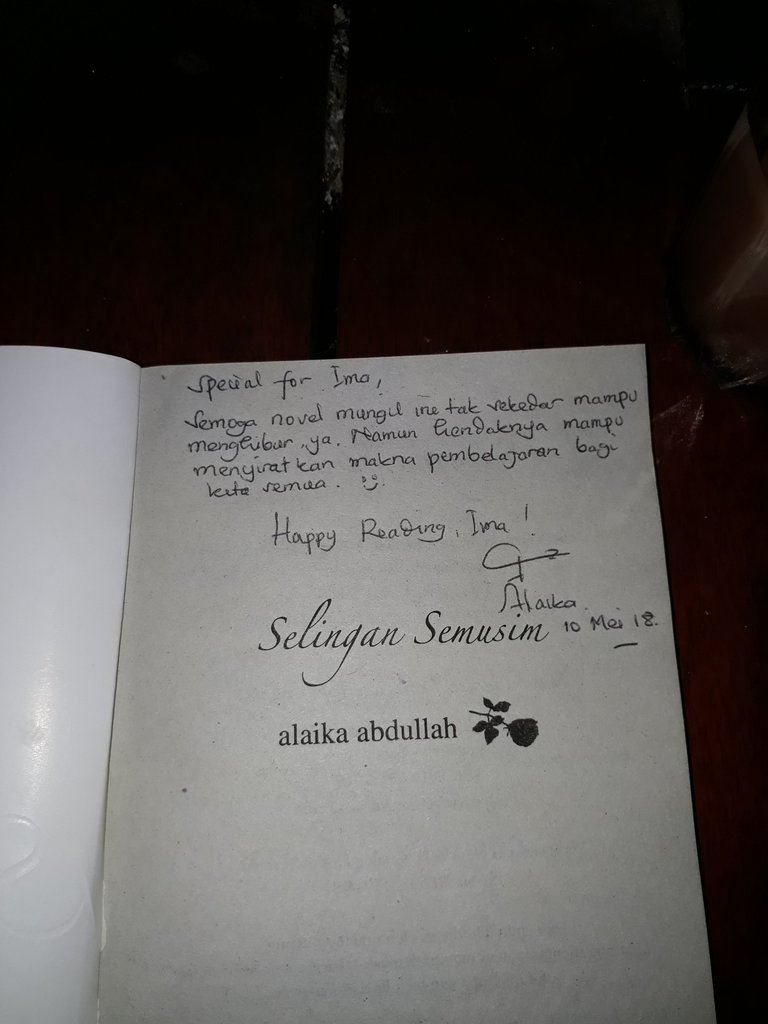 Special for Ima,
Semoga novel mungil ini tak sekedar mampu
menghibur, ya. Namun hendaknya mampu
menyiratkan makna pembelajaran bagi
kita semua. :)
Happy Reading, Ima!
Alaika
10 Mei 18.
Selingan Semusim
alaika abdullah